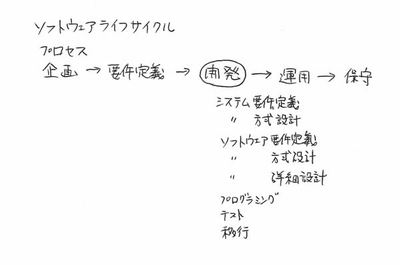 ソフトウェアライフサイクル
プロセス
企画 → 要件定義 → 開発 → 運用 → 保守
システム要件定義
〃 方式設計
ソフトウェア要件定義
〃 方式設計
〃 詳細設計
プログラミング
テスト
移行